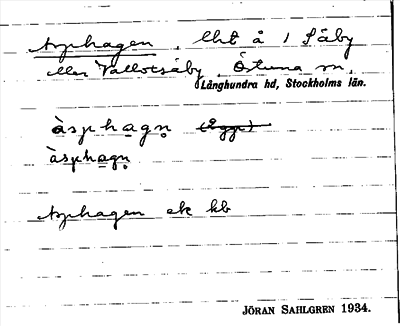 Asphagen, lht å 1 Säby
eller Vallotsäby, Östuna sn,
Långhundra hd, Stockholms län.
àsphagn
àsphagn
Asphagen ek kb
JÖRAN SAHLGREN 1934.